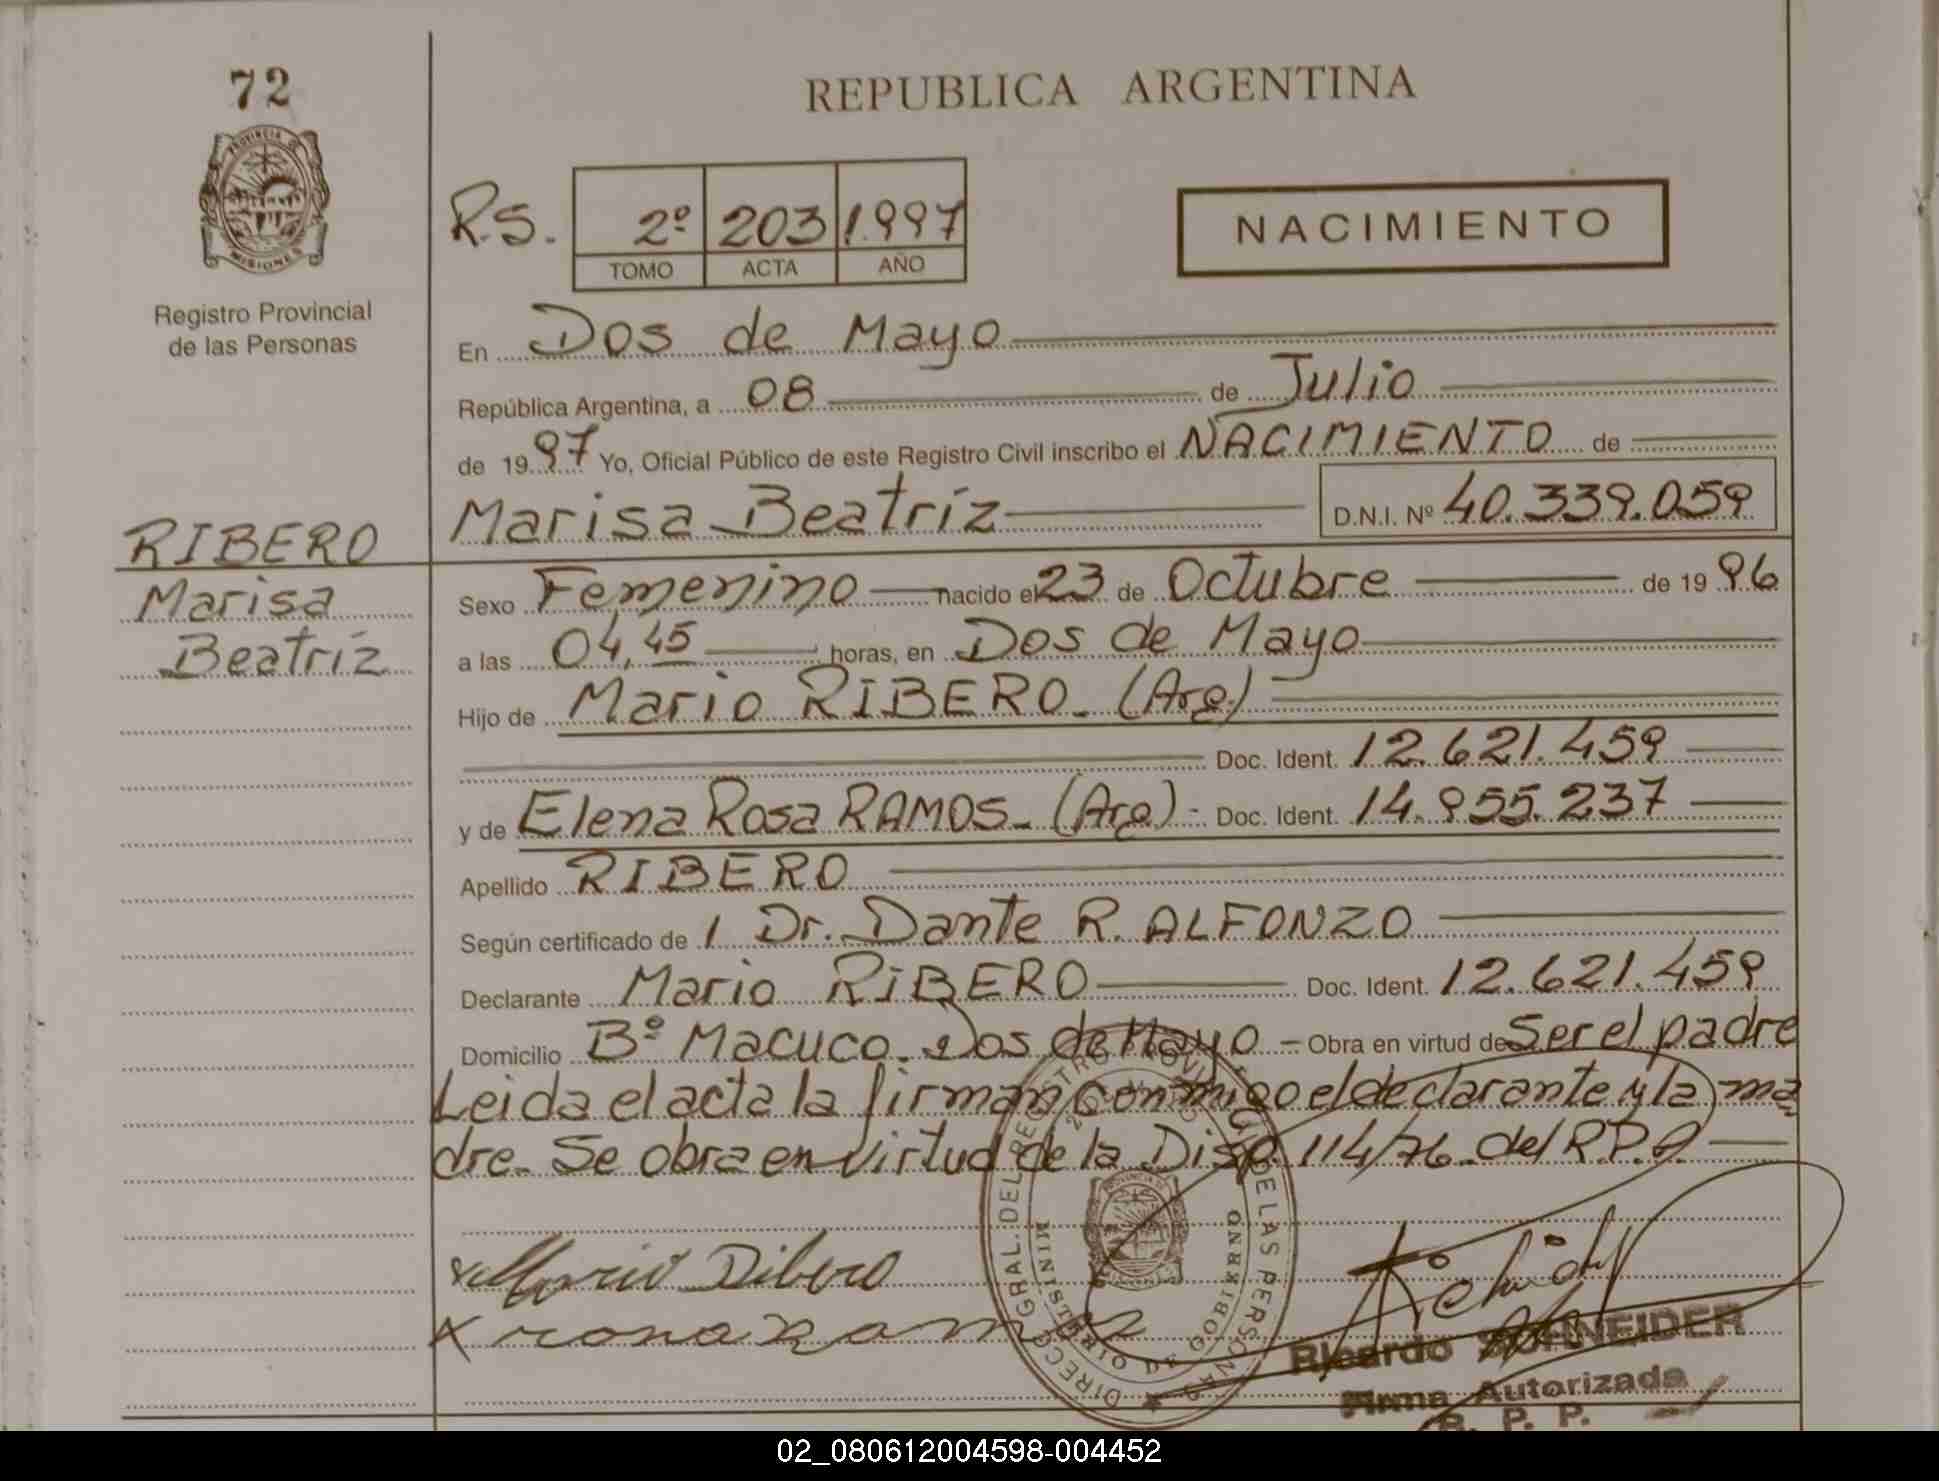 72
REPUBLICA ARGENTINA
PROVINCIA DE
MISIONES
Registro Provincial
de las Personas
R.S.
2º 203 1.997
TOMO ACTA AÑO
NACIMIENTO
En Dos de Mayo
República Argentina, a 08 de Julio
de 1997 Yo, Oficial Público de este Registro Civil inscribo el NACIMIENTO de
Marisa Beatríz D.N.I. Nº 40.339.059
RIBERO
Marisa
Beatríz
Sexo Femenino nacido el 23 de Octubre de 1996
a las 04,45 horas, en Dos de Mayo
Hijo de Mario RIBERO. (Arg)
Doc. Ident. 12.621.459
y de Elena Rosa RAMOS. (Arg) - Doc. Ident. 14.955.237
Apellido RIBERO
Según certificado de / Dr. Dante R. ALFONZO
Declarante Mario RIBERO Doc. Ident. 12.621.459
Domicilio Bº Macuco. Dos de Mayo - Obra en virtud de Ser el padre
Leida el acta la firman conmigo el declarante y la ma
dre. Se obra en virtud de la Disp. 114/76 del R.P.P.
Mario Ribero
DIRECC. GRAL. DEL REGISTRO PROVINCIAL DE LAS PERSONAS
MINISTERIO DE GOBIERNO
Ricardo SCHNEIDER
Firma Autorizada
R. P. P.
02_080612004598-004452